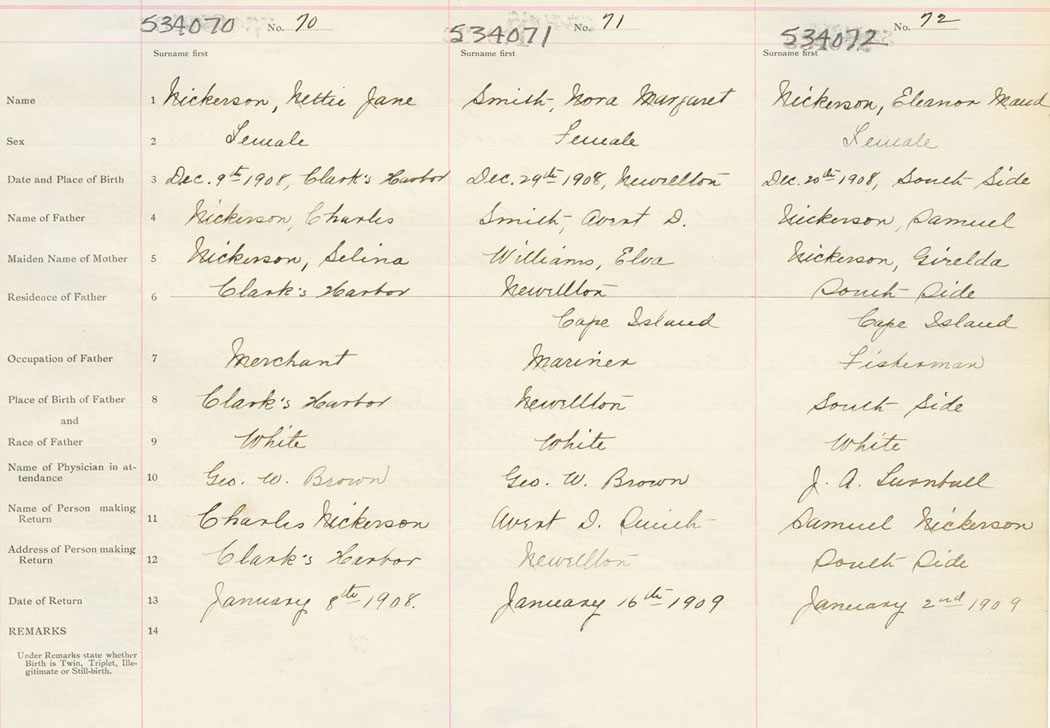 534070 No. 70 534071 No. 71 534072 No. 72
Surname first Surname first Surname first
Name 1 Nickerson, Nettie Jane Smith, Nora Margaret Nickerson, Eleanor Maud
Sex 2 Female Female Female
Date and Place of Birth 3 Dec. 9th 1908, Clark's Harbor Dec. 29th 1908, Newellton Dec. 20th 1908, South Side
Name of Father 4 Nickerson, Charles Smith, Avert D. Nickerson, Samuel
Maiden Name of Mother 5 Nickerson, Selina Williams, Elva Nickerson, Girelda
Residence of Father 6 Clark's Harbor Newellton South Side
Cape Island Cape Island
Occupation of Father 7 Merchant Mariner Fisherman
Place of Birth of Father 8 Clark's Harbor Newellton South Side
and
Race of Father 9 White White White
Name of Physician in at-
tendance 10 Geo. W. Brown Geo. W. Brown J. A. Turnbull
Name of Person making
Return 11 Charles Nickerson Avert D. Smith Samuel Nickerson
Address of Person making
Return 12 Clark's Harbor Newellton South Side
Date of Return 13 January 8th 1908. January 16th 1909 January 2nd 1909
REMARKS 14
Under Remarks state whether
Birth is Twin, Triplet, Ille-
gitimate or Still-birth.